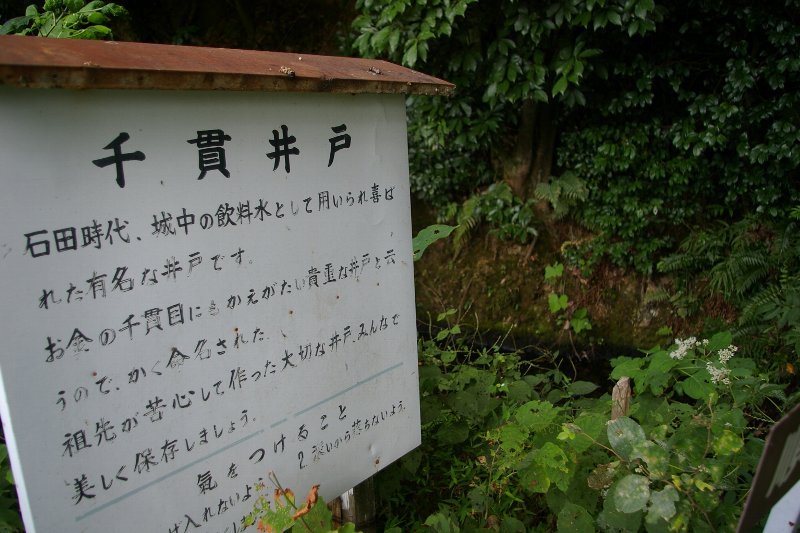 千貫井戸
石田時代、城中の飲料水として用いられ喜ば
れた有名な井戸です。
お金の千貫目にもかえがたい貴重な井戸と云
うので、かく命名された。
祖先が苦心して作った大切な井戸、みんなで
美しく保存しましょう。
気をつけること
げ入れないよう 2. 深いから落ちないよう.